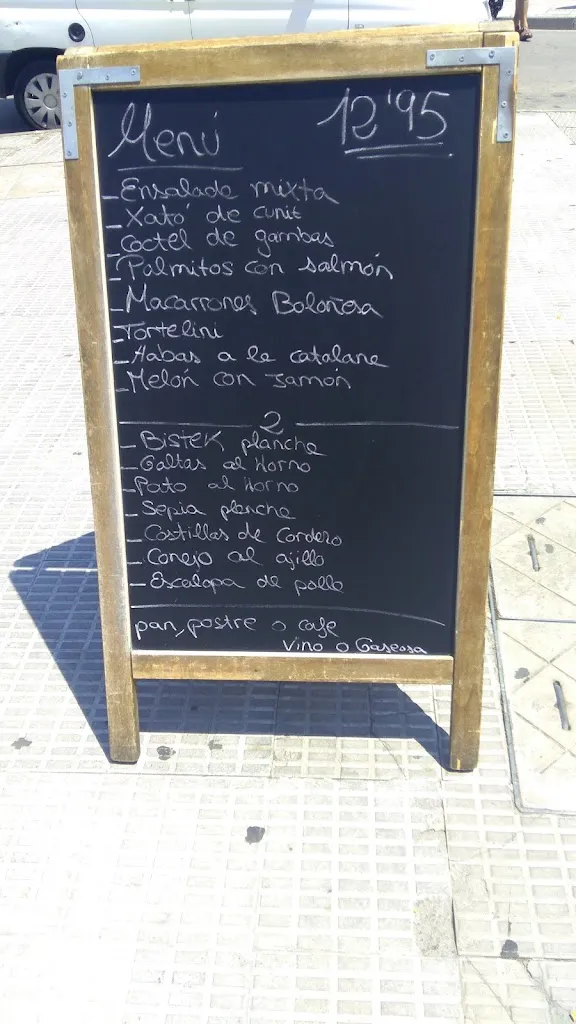 Menú 12'95
-Ensalada mixta
-Xató de cunit
-Coctel de gambas
-Palmitos con salmón
-Macarrones Boloñosa
-Tortelini
-Habas a la catalana
-Melón con jamón
2
-Bistek plancha
-Galtas al Horno
-Pato al Horno
-Sepia plancha
-Costillas de Cordero
-Conejo al ajillo
-Escalopa de pollo
pan, postre o cafe
Vino o Gaseosa